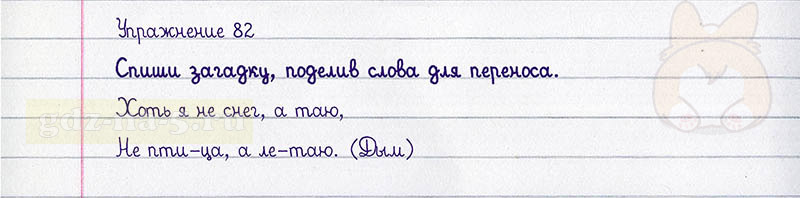 Упражнение 82
Спиши загадку, поделив слова для переноса.
Хоть я не снег, а таю,
gdz-na-5.ru
Не пти-ца, а ле-таю. (Дым)